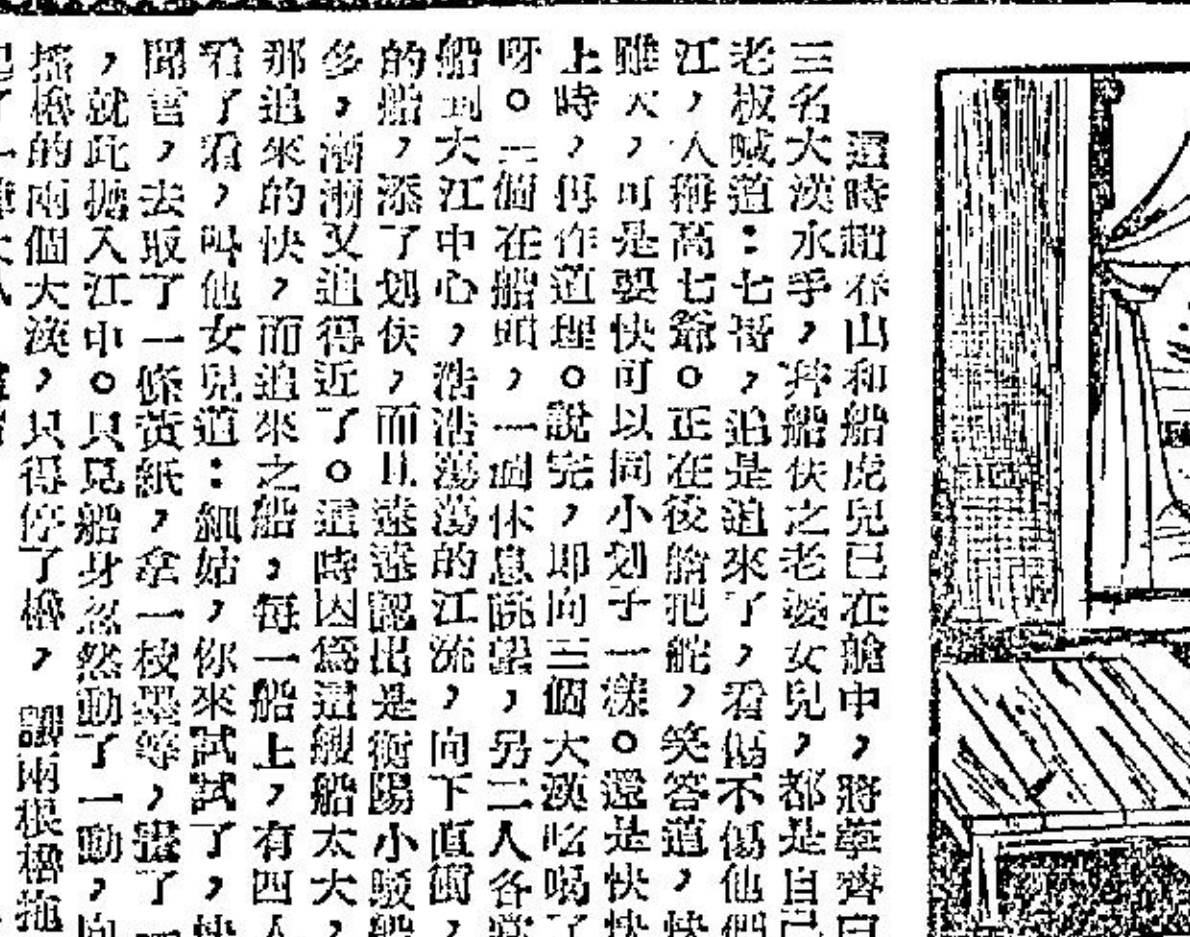 這時趙不山和船虎兒已在艙中，將
三名大漢水手，幷船伕之老婆女兒，都是自己
老板喊道：七哥，追是追來了，看傷不傷他們
江，人稱高七爺。正在後艙把舵，笑答道，快
雖大，可是要快可以同小划子一樣。還是快快
上時，再作道理。說完，即向三個大漢吆喝了
呀。一個在船頭，一個休息眺望，另二人各
船到大江中心，浩浩蕩蕩的江流，向下直衝，
的船，添了划伕，而且遠遠認出是衡陽小駁船
多，漸漸又追得近了。這時因爲這艘船太大，
那追來的快，而追來之船，每一船上，有四人
看了看，叫他女兒道：細姑，你來試試了，快
聞言，去取了一條黃紙，拿一枝墨筆，畫了一
，就此拋入江中。只見船身忽然動了一動，向
搖櫓的兩個大漢，只得停了櫓，讓兩根櫓拖